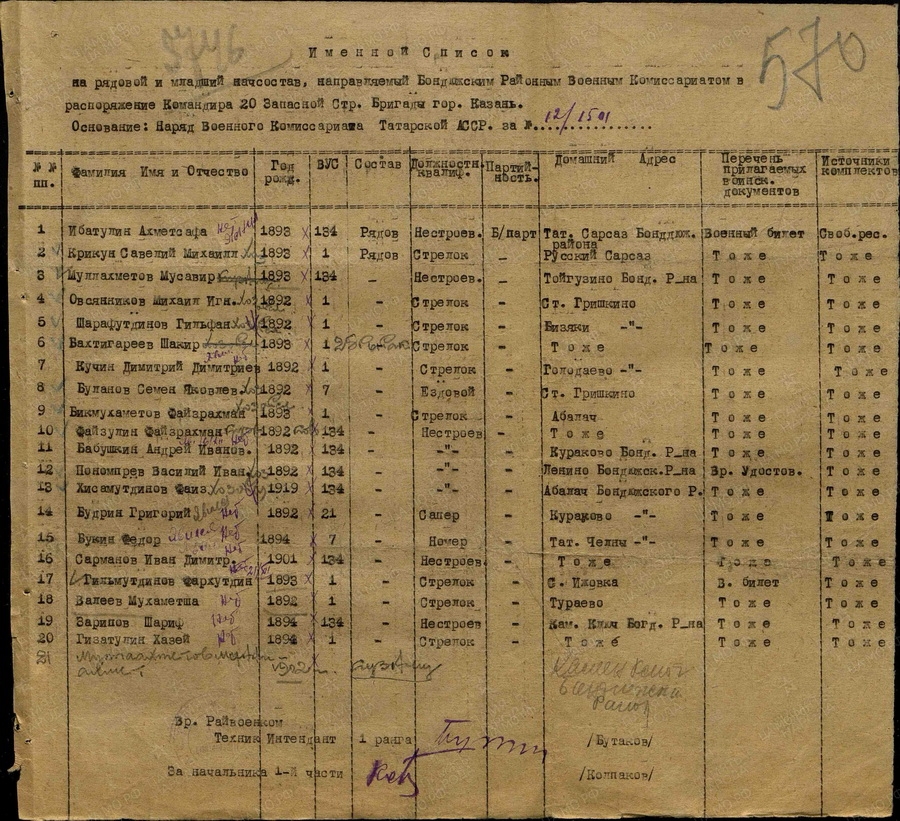 3746
570
Именной Список
на рядовой и младший начсостав, направляемый Бондюжским Районным Военным Комиссариатом в
распоряжение Командира 20 Запасной Стр. Бригады гор. Казань.
Основание: Наряд Военного Комиссариата Татарской АССР. за №. 12/1501
№ № пп. Фамилия Имя и Отчество Год рожд. ВУС Состав Должностн. квалиф. Партий-ность. Домашний Адрес Перечень прилагаемых воинск. документов Источники комплектов
1 Ибатулин Ахметсафа 1893 134 Рядов Нестроев. Б/парт Тат. Сарсаз Бонддюж. района Военный билет Своб.рес.
2 Крикун Савелий Михаилл 1893 1 Рядов Стрелок - Русский Сарсаз Тоже Тоже
3 Муллахметов Мусавир 1893 134 - Нестроев. - Тойгузино Бонд. Р_на Тоже Тоже
4 Овсянников Михаил Игн. 1892 1 - Стрелок - Ст. Гришкино Тоже Тоже
5 Шарафутдинов Гильфан 1892 1 - Стрелок - Бизяки -"- Тоже Тоже
6 Вахтигареев Шакир 1893 1 - Стрелок - Тоже Тоже Тоже
7 Кучин Димитрий Димитриев 1892 1 - Стрелок - Голодзево -"- Тоже Тоже
8 Буланов Семен Яковлев. 1892 7 - Ездовой - Ст. Гришкино Тоже Тоже
9 Бикмухаметов Файзрахман 1893 1 - Стрелок - Абалач Тоже Тоже
10 Файзулин Файзрахман 1892 134 - Нестроев - Тоже Тоже Тоже
11 Бабушкин Андрей Иванов. 1892 134 - -"- - Кураково Бонд. Р_на Тоже Тоже
12 Пономпрев Василий Иван. 1892 134 - -"- - Ленино Бондюжск.Р_на Вр. Удостов. Тоже
13 Хисамутдинов Фаиз 1919 134 - -"- - Абалач Бондюжского Р. Тоже Тоже
14 Будрин Григорий Нет 1892 21 - Сапер - Кураково -"- Тоже Тоже
15 Букин Федор Нет 1894 7 - Номер - Тат. Челны -"- Тоже Тоже
16 Сарманов Иван Димитр. Нет 1901 134 - Нестроев. - Тоже Тоже Тоже
17 Гильмутдинов Фархутдин 1893 1 - Стрелок - С. Ижовка В. билет Тоже
18 Валеев Мухаметша Нет 1892 1 - Стрелок - Тураево Тоже Тоже
19 Зарипов Шариф Нет 1894 134 - Нестроев - Кам. Ключ Богд. Р_на Тоже Тоже
20 Гизатулин Хазей Нет 1894 1 - Стрелок - Тоже Тоже Тоже
21
Вр. Райвоенком
Техник Интендант 1 ранга /Бутаков/
За начальника 1-й части /Колпаков/